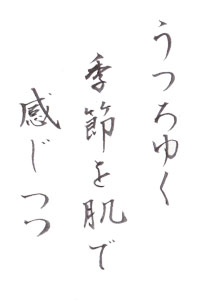 うつろゆく
季節を肌で
感じつつ